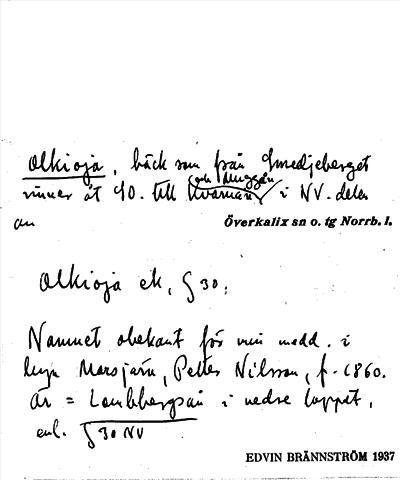 Olkioja, bäck som från Smedjeberget
och Muggån
rinner åt SO. till Kvarnån i NV. delen
av
Överkalix sn o. tg Norrb. l.
Olkioja ek, § 30;
Namnet obekant för min medd. i
byn Morsjärv, Petter Nilsson, f. 1860.
Är = Lombbergsån i nedre loppet,
enl. § 30 NV
EDVIN BRÄNNSTRÖM 1937